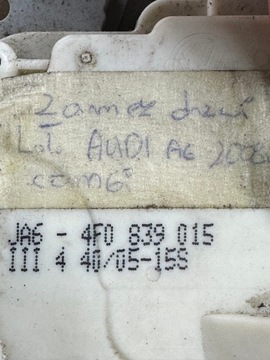 Zamek drzwi
AUDI A6 2006
JA6 - 4F0 839 015
III 4 40/05-15S